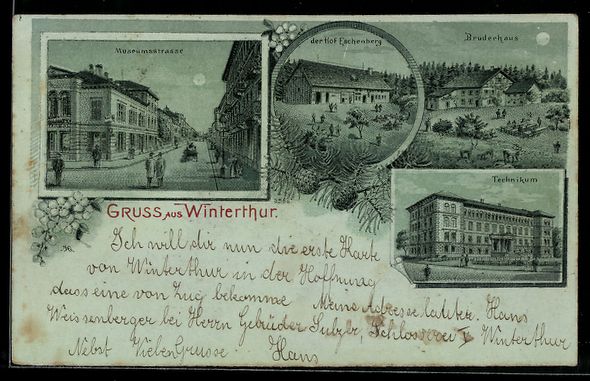 Museumsstrasse
der Hof Eschenberg
Bruderhaus
Technikum
GRUSS AUS WINTERTHUR.
Ich will dir nun die erste Karte
von Winterthur in der Hoffnung
dass eine von Zug bekomme Meine Adresse lautet. Hans
Weissenberger bei Herrn Gebrüder Sulzer, Schlosserei I Winterthur
Nebst Vielen Grusse
Hans